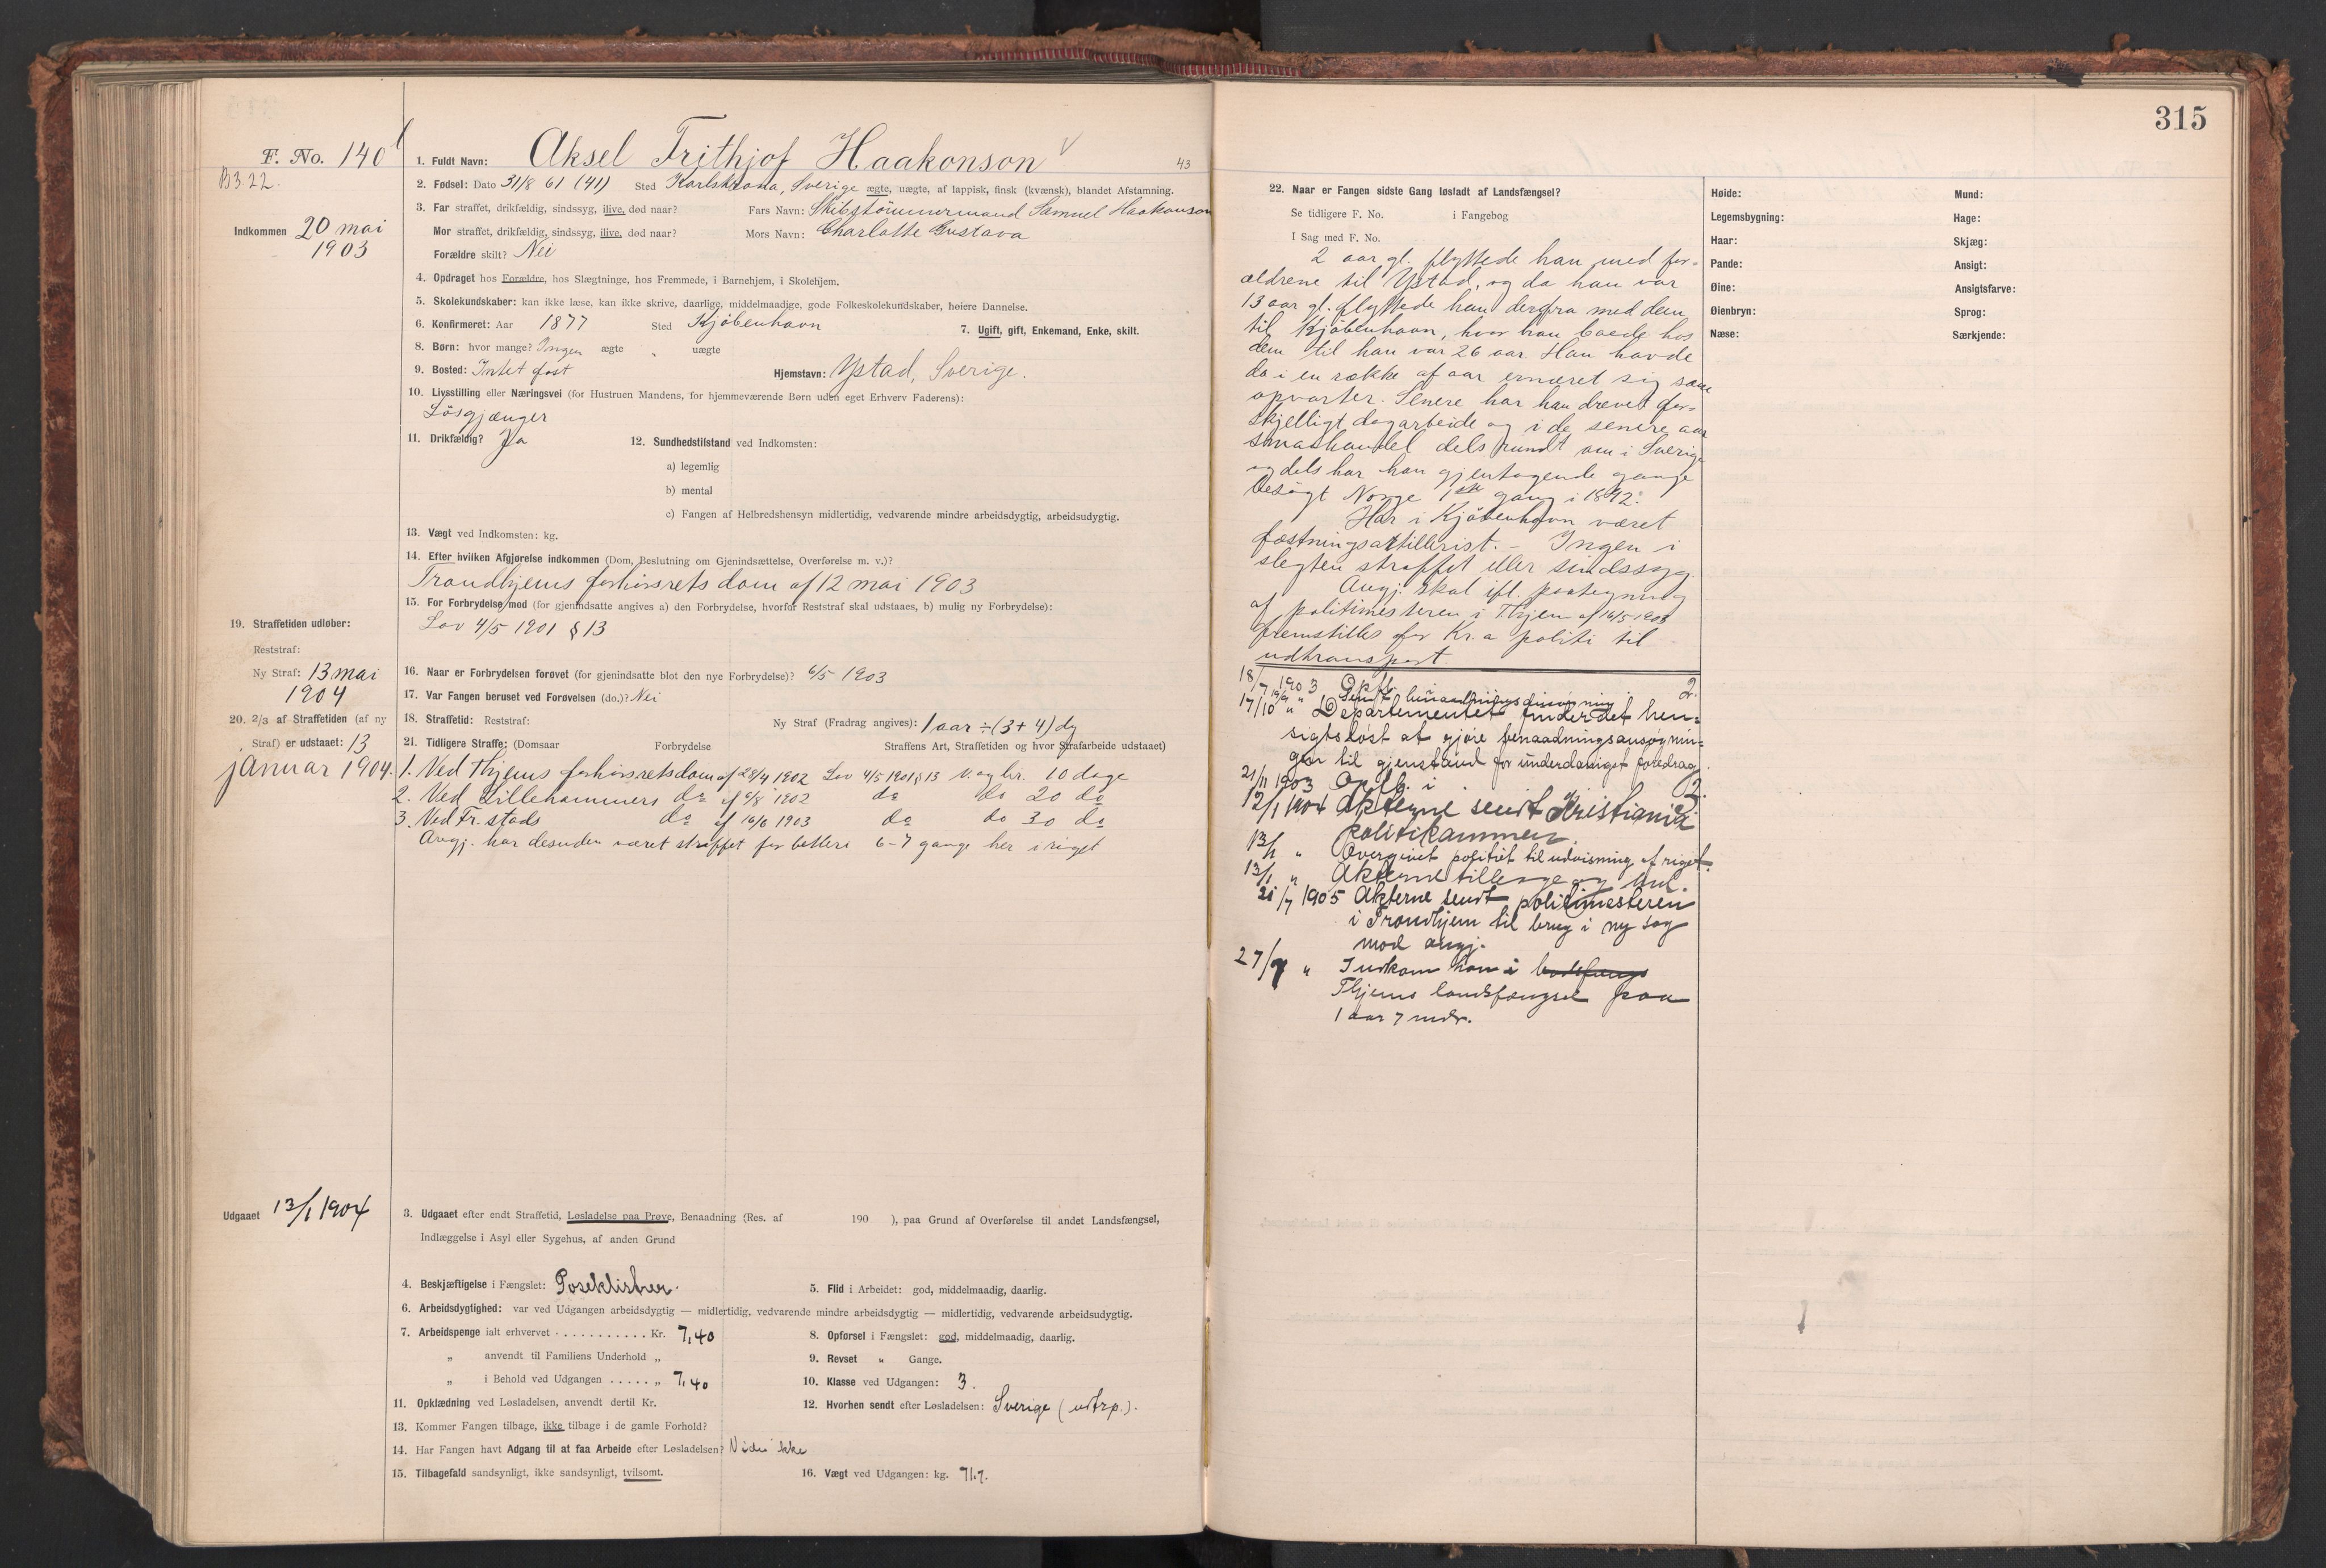 315
F. No. 140
B3.22.
Indkommen 20 mai
1903
1. Fuldt Navn: Aksel Frithjof Haakonson
43
2. Fødsel: Dato 31/8 61 (41) Sted Karlskrona, Sverige ægte, uægte, af lappisk, finsk (kvænsk), blandet Afstamning.
3. Far straffet, drikfældig, sindssyg, ilive, død naar? Fars Navn: Skibstömmermand Samuel Haakonson
Mor straffet, drikfældig, sindssyg, ilive, død naar? Mors Navn: Charlotte Gustava
Forældre skilt? Nei
4. Opdraget hos Forældre, hos Slægtninge, hos Fremmede, i Barnehjem, i Skolehjem.
5. Skolekundskaber: kan ikke læse, kan ikke skrive, daarlige, middelmaadige, gode Folkeskolekundskaber, høiere Dannelse.
6. Konfirmeret: Aar 1877 Sted Kjöbenhavn 7. Ugift, gift, Enkemand, Enke, skilt.
8. Børn: hvor mange? Ingen ægte " uægte
9. Bosted: Intet fast Hjemstavn: Ystad, Sverige.
10. Livsstilling eller Næringsvei (for Hustruen Mandens, for hjemmeværende Børn uden eget Erhverv Faderens):
Lösgjænger
11. Drikfældig? Ja 12. Sundhedstilstand ved Indkomsten:
a) legemlig
b) mental
c) Fangen af Helbredshensyn midlertidig, vedvarende mindre arbeidsdygtig, arbeidsudygtig.
13. Vægt ved Indkomsten: kg.
14. Efter hvilken Afgjørelse indkommen (Dom, Beslutning om Gjenindsættelse, Overførelse m. v.)?
Trondhjems forhörsrets dom af 12 mai 1903
15. For Forbrydelse mod (for gjenindsatte angives a) den Forbrydelse, hvorfor Reststraf skal udstaaes, b) mulig ny Forbrydelse):
Lov 4/5 1901 § 13
19. Straffetiden udløber:
Reststraf:
Ny Straf: 13 mai
1904
16. Naar er Forbrydelsen forøvet (for gjenindsatte blot den nye Forbrydelse)? 6/5 1903
17. Var Fangen beruset ved Forøvelsen (do.)? Nei
20. 2/3 af Straffetiden (af ny
Straf) er udstaaet: 13
januar 1904.
18. Straffetid: Reststraf: Ny Straf (Fradrag angives): 1 aar ÷ (3 + 4) dg
21. Tidligere Straffe: (Domsaar Forbrydelse Straffens Art, Straffetiden og hvor Strafarbeide udstaaet)
1. Ved Thjems forhörsretsdom af 28/4 1902 Lov 4/5 1901 § 13 V. og br. 10 dage
2. Ved Lillehammers do af 6/8 1902 do do 20 do
3. Ved Fr.stads do af 16/6 1903 do do 30 do
Angj. har desuden været straffet for betleri 6-7 gange her i riget
Udgaaet 13/1 1904
3. Udgaaet efter endt Straffetid, Løsladelse paa Prøve, Benaadning (Res. af 190 ), paa Grund af Overførelse til andet Landsfængsel,
Indlæggelse i Asyl eller Sygehus, af anden Grund
4. Beskjæftigelse i Fængslet: Poseklistrer. 5. Flid i Arbeidet: god, middelmaadig, daarlig.
6. Arbeidsdygtighed: var ved Udgangen arbeidsdygtig — midlertidig, vedvarende mindre arbeidsdygtig — midlertidig, vedvarende arbeidsudygtig.
7. Arbeidspenge ialt erhvervet . . . . . . . . . . . Kr. 7,40 8. Opførsel i Fængslet: god, middelmaadig, daarlig.
„ anvendt til Familiens Underhold „ 9. Revset " Gange.
„ i Behold ved Udgangen . . . . . „ 7,40 10. Klasse ved Udgangen: 3.
11. Opklædning ved Løsladelsen, anvendt dertil Kr. 12. Hvorhen sendt efter Løsladelsen: Sverige (udtrp.).
13. Kommer Fangen tilbage, ikke tilbage i de gamle Forhold?
14. Har Fangen havt Adgang til at faa Arbeide efter Løsladelsen? Vides ikke
15. Tilbagefald sandsynligt, ikke sandsynligt, tvilsomt. 16. Vægt ved Udgangen: kg. 71.7.
22. Naar er Fangen sidste Gang løsladt af Landsfængsel?
Se tidligere F. No. i Fangebog
I Sag med F. No.
2 aar gl. flyttede han med for=
ældrene til Ystad, og da han var
13 aar gl. flyttede han derfra med dem
til Kjöbenhavn, hvor han boede hos
dem til han var 26 aar Han havde
da i en række af aar ernæret sig som
opvarter. Senere har han drevet for=
skjelligt dagarbeide og i de senere aar
smaahandel dels rundt om i Sverige
og dels har han gjentagende gange
besögt Norge 1ste gang i 1892.
Har i Kjöbenhavn været
fæstningsartillerist. - Ingen i
slegten straffet eller sindssyg.
Angj. skal ifl. paategning
af politimesteren i Thjem af 16/5 1903
fremstilles for Kr.a politi til
udtransport.
18/7 1903 Opfl. 2.
19/9 " Sendt benaadningsansøgning
17/10 " Departementet finder det hen=
sigtsløst at gjöre benaadningsansøgnin=
gen til gjenstand for underdanigst foredrag.
21/11 1903 Opfl. i 3.
12/1 1904 Akterne sendt Kristiania
politikammer.
13/1 " Overgivet politiet til udvisning af riget.
13/1 " Akterne tilbage og hul.
21/7 1905 Akterne sendt politimesteren
i Trondhjem til brug i ny sag
mod angj.
27/7 " Indkom han i bodsfængs
Thjems landsfængsel paa
1 aar 7 mdr.
Høide: Mund:
Legemsbygning: Hage:
Haar: Skjæg:
Pande: Ansigt:
Øine: Ansigtsfarve:
Øienbryn: Sprog:
Næse: Særkjende: